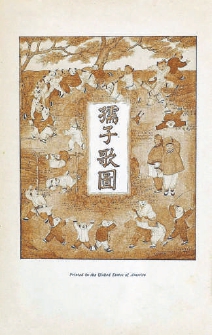 孺子歌圖
Printed in the United States of America